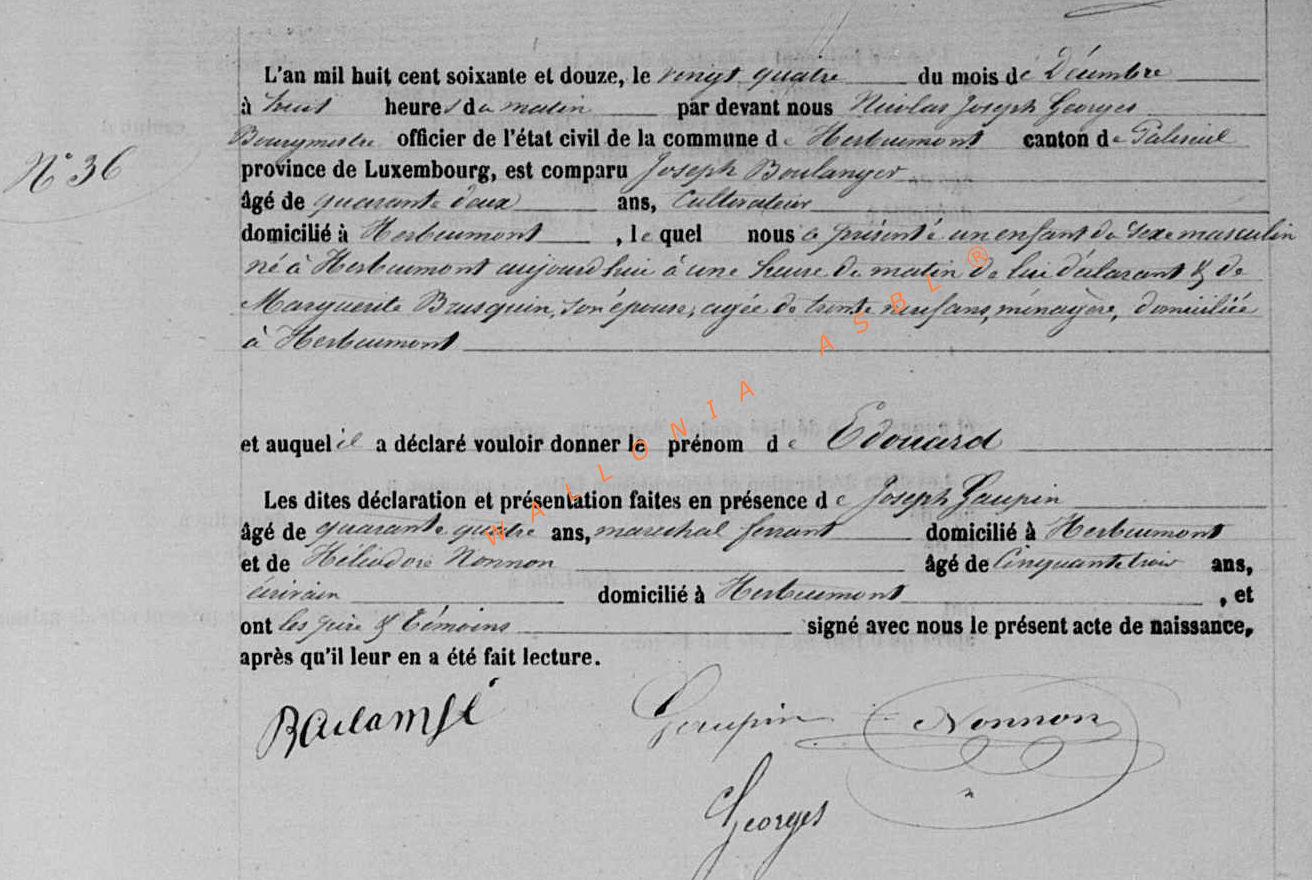 L'an mil huit cent soixante et douze, le vingt quatre du mois de Décembre
à huit heures du matin par devant nous Nicolas Joseph Georges
Bourgmestre officier de l'état civil de la commune de Herbeumont canton de Paliseul
N° 36
province de Luxembourg, est comparu Joseph Boulanger
âgé de quarante deux ans, Cultivateur
domicilié à Herbeumont , le quel nous a présenté un enfant du sexe masculin
né à Herbeumont aujourdhui à une heure du matin de lui déclarant & de
Marguerite Brusquin, son épouse, agée de trente neuf ans, ménagère, domiciliée
à Herbeumont
et auquel il a déclaré vouloir donner le prénom de Edouard
Les dites déclaration et présentation faites en présence de Joseph Gaupin
âgé de quarante quatre ans, marechal ferrant domicilié à Herbeumont
et de Héliodore Nonnon âgé de Cinquante trois ans,
écrivain domicilié à Herbeumont , et
ont les père & témoins signé avec nous le présent acte de naissance,
après qu'il leur en a été fait lecture.
Gaupin Nonnon
Georges
WALLONIA ASBL ®